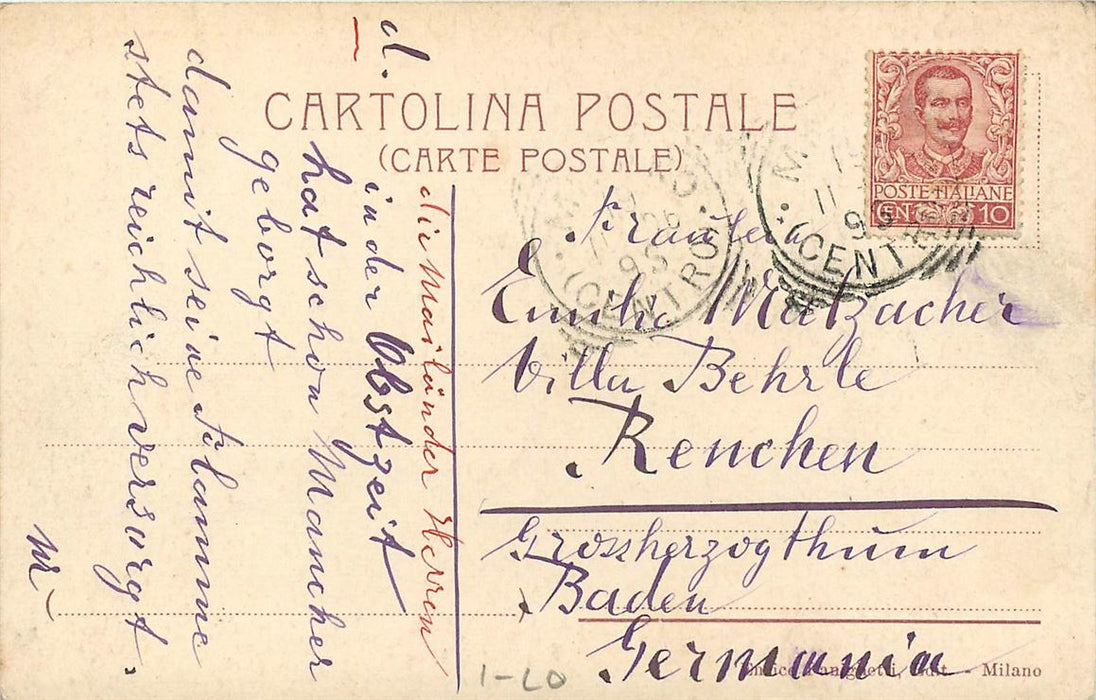 CARTOLINA POSTALE
(CARTE POSTALE)
POSTE ITALIANE
CEN. 10
(CENTRO)
95
(CENT
Fräulein
Emilia Matzacher
Villa Behrle
Renchen
Grossherzogthum
Baden
Germania
Edit. - Milano
1-20
die Mailänder Herren
d. in der Obstzeit
hat schon Mancher
geborgt
damit seine Flamme
stets reichlich versorgt.